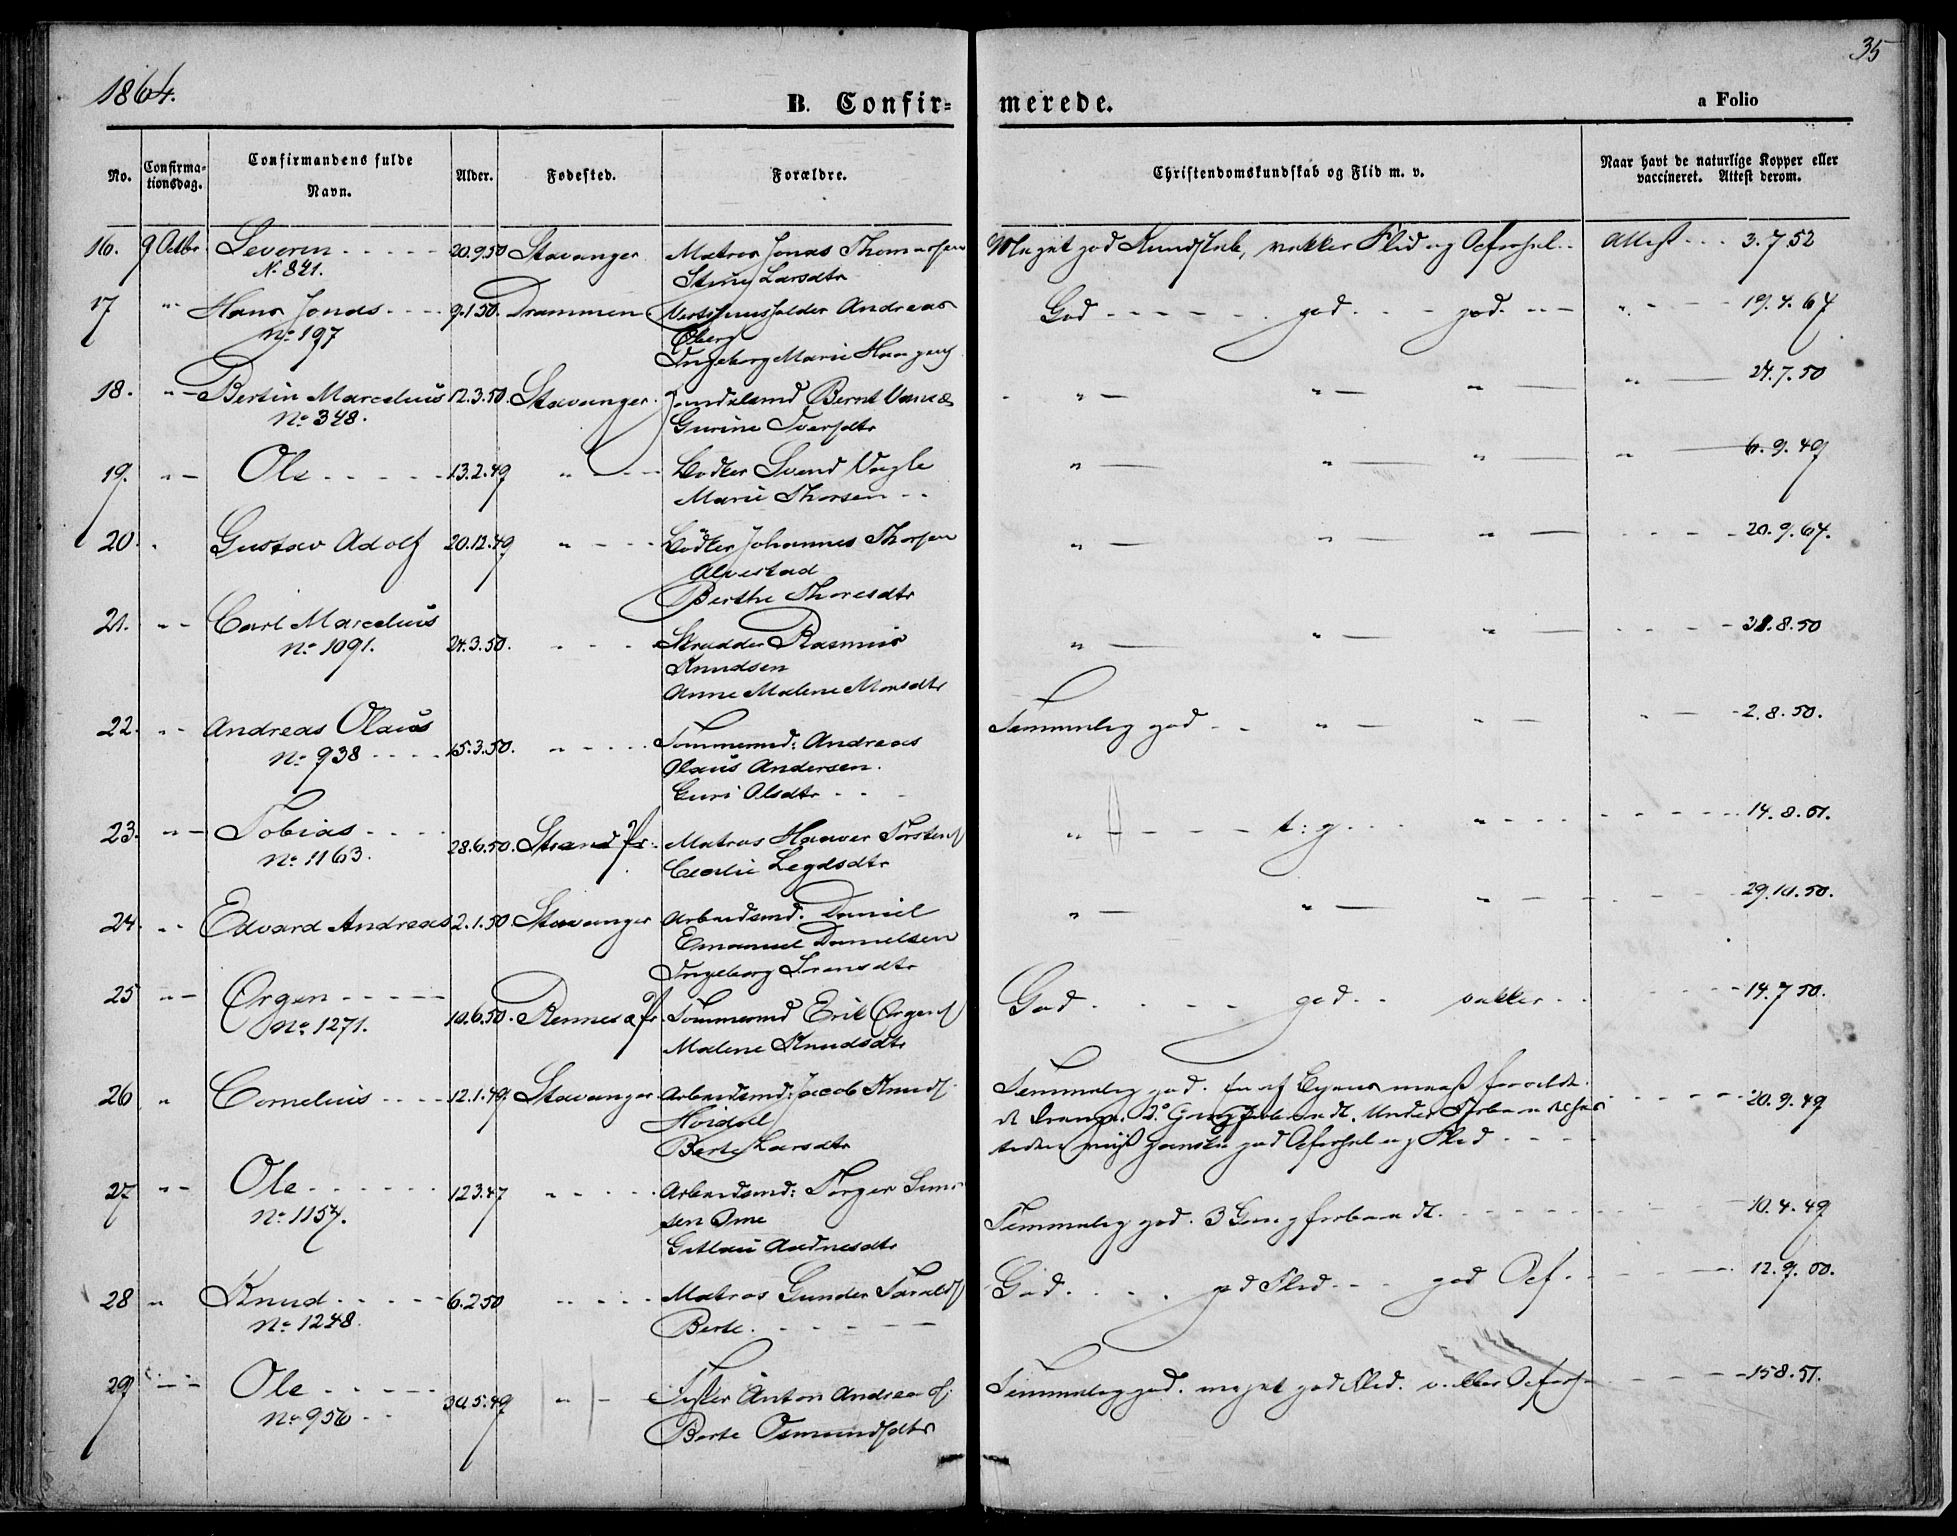 35
1864.
B. Confir- merede.
a Folio
No. Confirma-tionsdag. Confirmandens fulde Navn. Alder. Fødested. Forældre. Christendomskundskab og Flid m. v. Naar havt de naturlige Kopper eller vaccineret. Attest derom.
16. 9 Octbr. Severin - - - - - 20.9.50 Stavanger Matros Jonas Thomassen Meget god Kundskab, vakker Flid og Opførsel - Attest - - - 3.7.52
N. 821. Larsdtr
17 " - Hans Jonas - - - - 9.1.50. Drammen Vertshuusholder Andreas God - - - - - - god - - - god - - - " - - - 19.4.64
No 197 Øberg
Ingeborg Marie
18. " - Bertin Marcelius 12.3.50. Stavanger. Bernt " - " - " - " - 24.7.50
No 348. Gurine Iversdtr
19. " - Ole - - - - - 13.2.49 " - - - Bødker Svend Vagle " - " - " - " - 6.9.49
Marie Thorsen - -
20. " Gustav Adolf 20.12.49 " - - - Bødker Johannes Thorsen " - " - " - - - - - 20.9.64.
Alvestad
Berthe Thoresdtr
21. - - Carl Marcelius
No 1091. 24.3.50. - - - Skrædder Rasmus " - " - " - - - - - 31.8.50
Knudsen
Anne Malene Monsdtr
22. - - Andreas Olaus Temmelig god - - " - " - " - - 2.8.50.
No 938 - - - - 15.3.50. " - - - - Tømmermd: Andreas
Olaus Andersen.
Guri Olsdtr - - -
23. " - Tobias - - - - 28.6.50. Strand Pr. Matros Haaver Torstens " - - - - - t: g - - - " - - - - - - - 14.8.51.
No 1163. Cecilie
24. - - Edvard Andreas 2.1.50. Stavanger Arbeidsmd. Daniel " - " - " - - - - - 29.10.50.
Emanuel Danielsen
Ingeborg
25 " - Ørgen - - - - - 10.6.50. Rennesø Pr. Tømmermd Erik Ørgens God - - - - - god - - vakker - - - - - - 14.7.50.
No 1271. Malene Knudsdtr
26 " Cornelius - - - - 12.1.49. Stavanger Arbeidsmd: Jacob Knuds Temmelig god.
20.9.49
Berte Larsdtr ganske god Opførsel og Flid - - - -
27 " - Ole - - - - - - 12.3.47 " - - - - Arbeidsmd: Torger
No 1154. Temmelig god. 3 Gang forbered - - - - - - 10.4.49
28 " Knud - - - - - 6.2.50 " - - - Matros Gunder God - - - - god Flid - - - god Opf - - - - - 12.9.50.
No 1248. Berte - - - - - -
29 " - Ole - - - - - 30.5.49 " - Fisker Anton Andreas Temmelig god. meget god Flid. vakker - - - - 15.8.51.
No 956 - - Berte Osmundsdtr